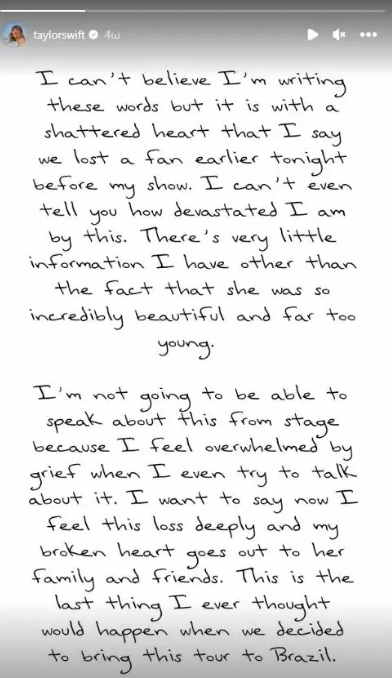 taylorswift 4ω
I can't believe I'm writing
these words but it is with a
shattered heart that I say
we lost a fan earlier tonight
before my show. I can't even
tell you how devastated I am
by this. There's very little
information I have other than
the fact that she was so
incredibly beautiful and far too
young.
I'm not going to be able to
speak about this from stage
because I feel overwhelmed by
grief when I even try to talk
about it. I want to say now I
feel this loss deeply and my
broken heart goes out to her
family and friends. This is the
last thing I ever thought
would happen when we decided
to bring this tour to Brazil.